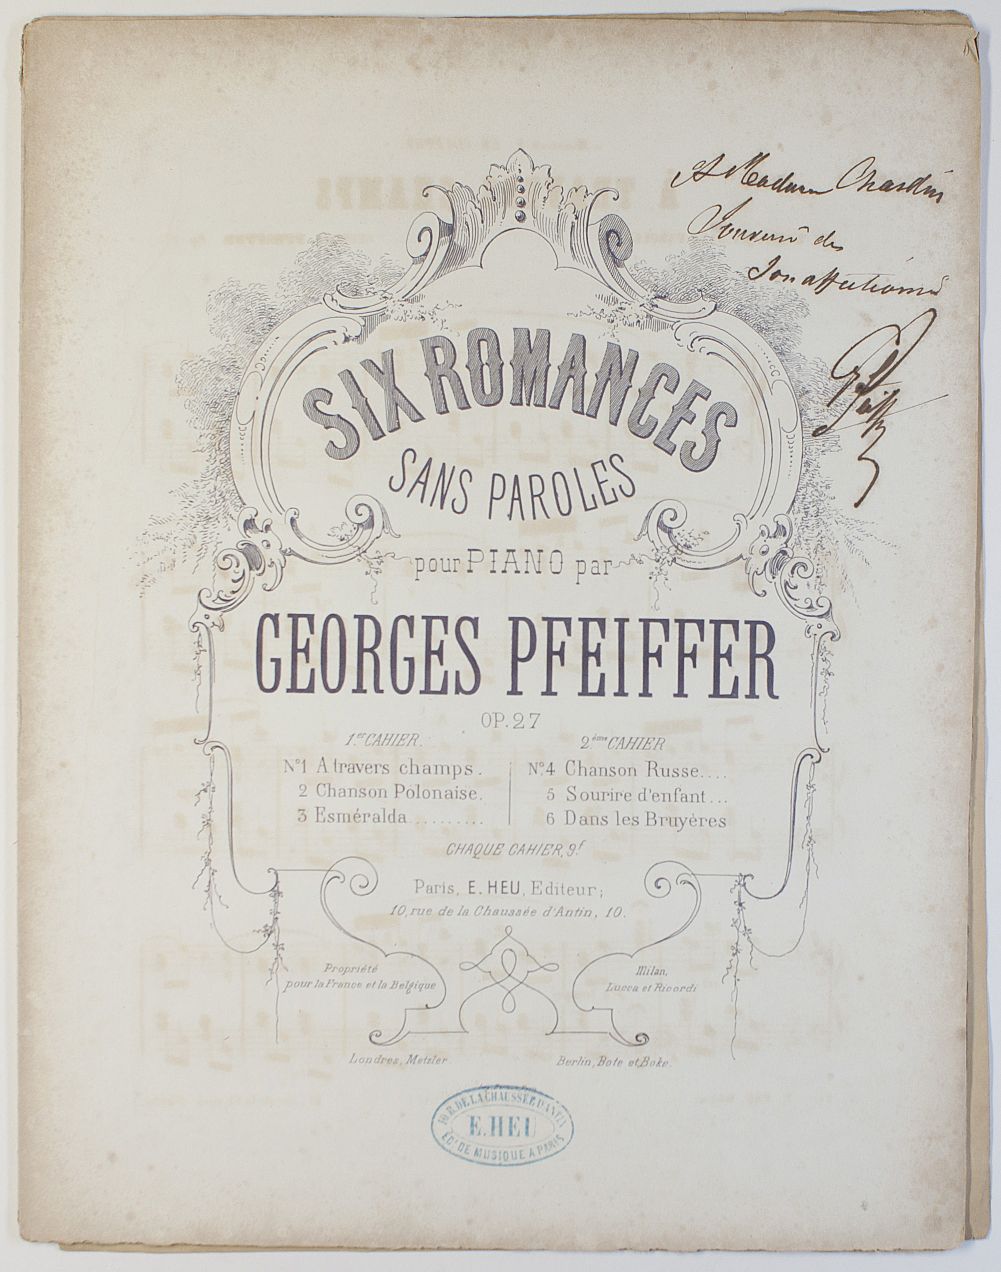 A Madame Chardin
Souvenir de
Son affectionné
GPfeiffer
SIX ROMANCES
SANS PAROLES
pour PIANO par
GEORGES PFEIFFER
OP. 27
1.er CAHIER.
N.o 1 A travers champs.
2 Chanson Polonaise.
3 Esméralda.........
2.ème CAHIER
N.o 4 Chanson Russe....
5 Sourire d'enfant...
6 Dans les Bruyères
CHAQUE CAHIER, 9.f
Paris, E. HEU, Editeur;
10, rue de la Chaussée d'Antin, 10.
Propriété
pour la France et la Belgique
Milan,
Lucca et Ricordi
Londres, Metzler
Berlin, Bote et Boke.
10 R. DE LA CHAUSSÉE D'ANTIN
E. HEU
ED.R DE MUSIQUE A PARIS